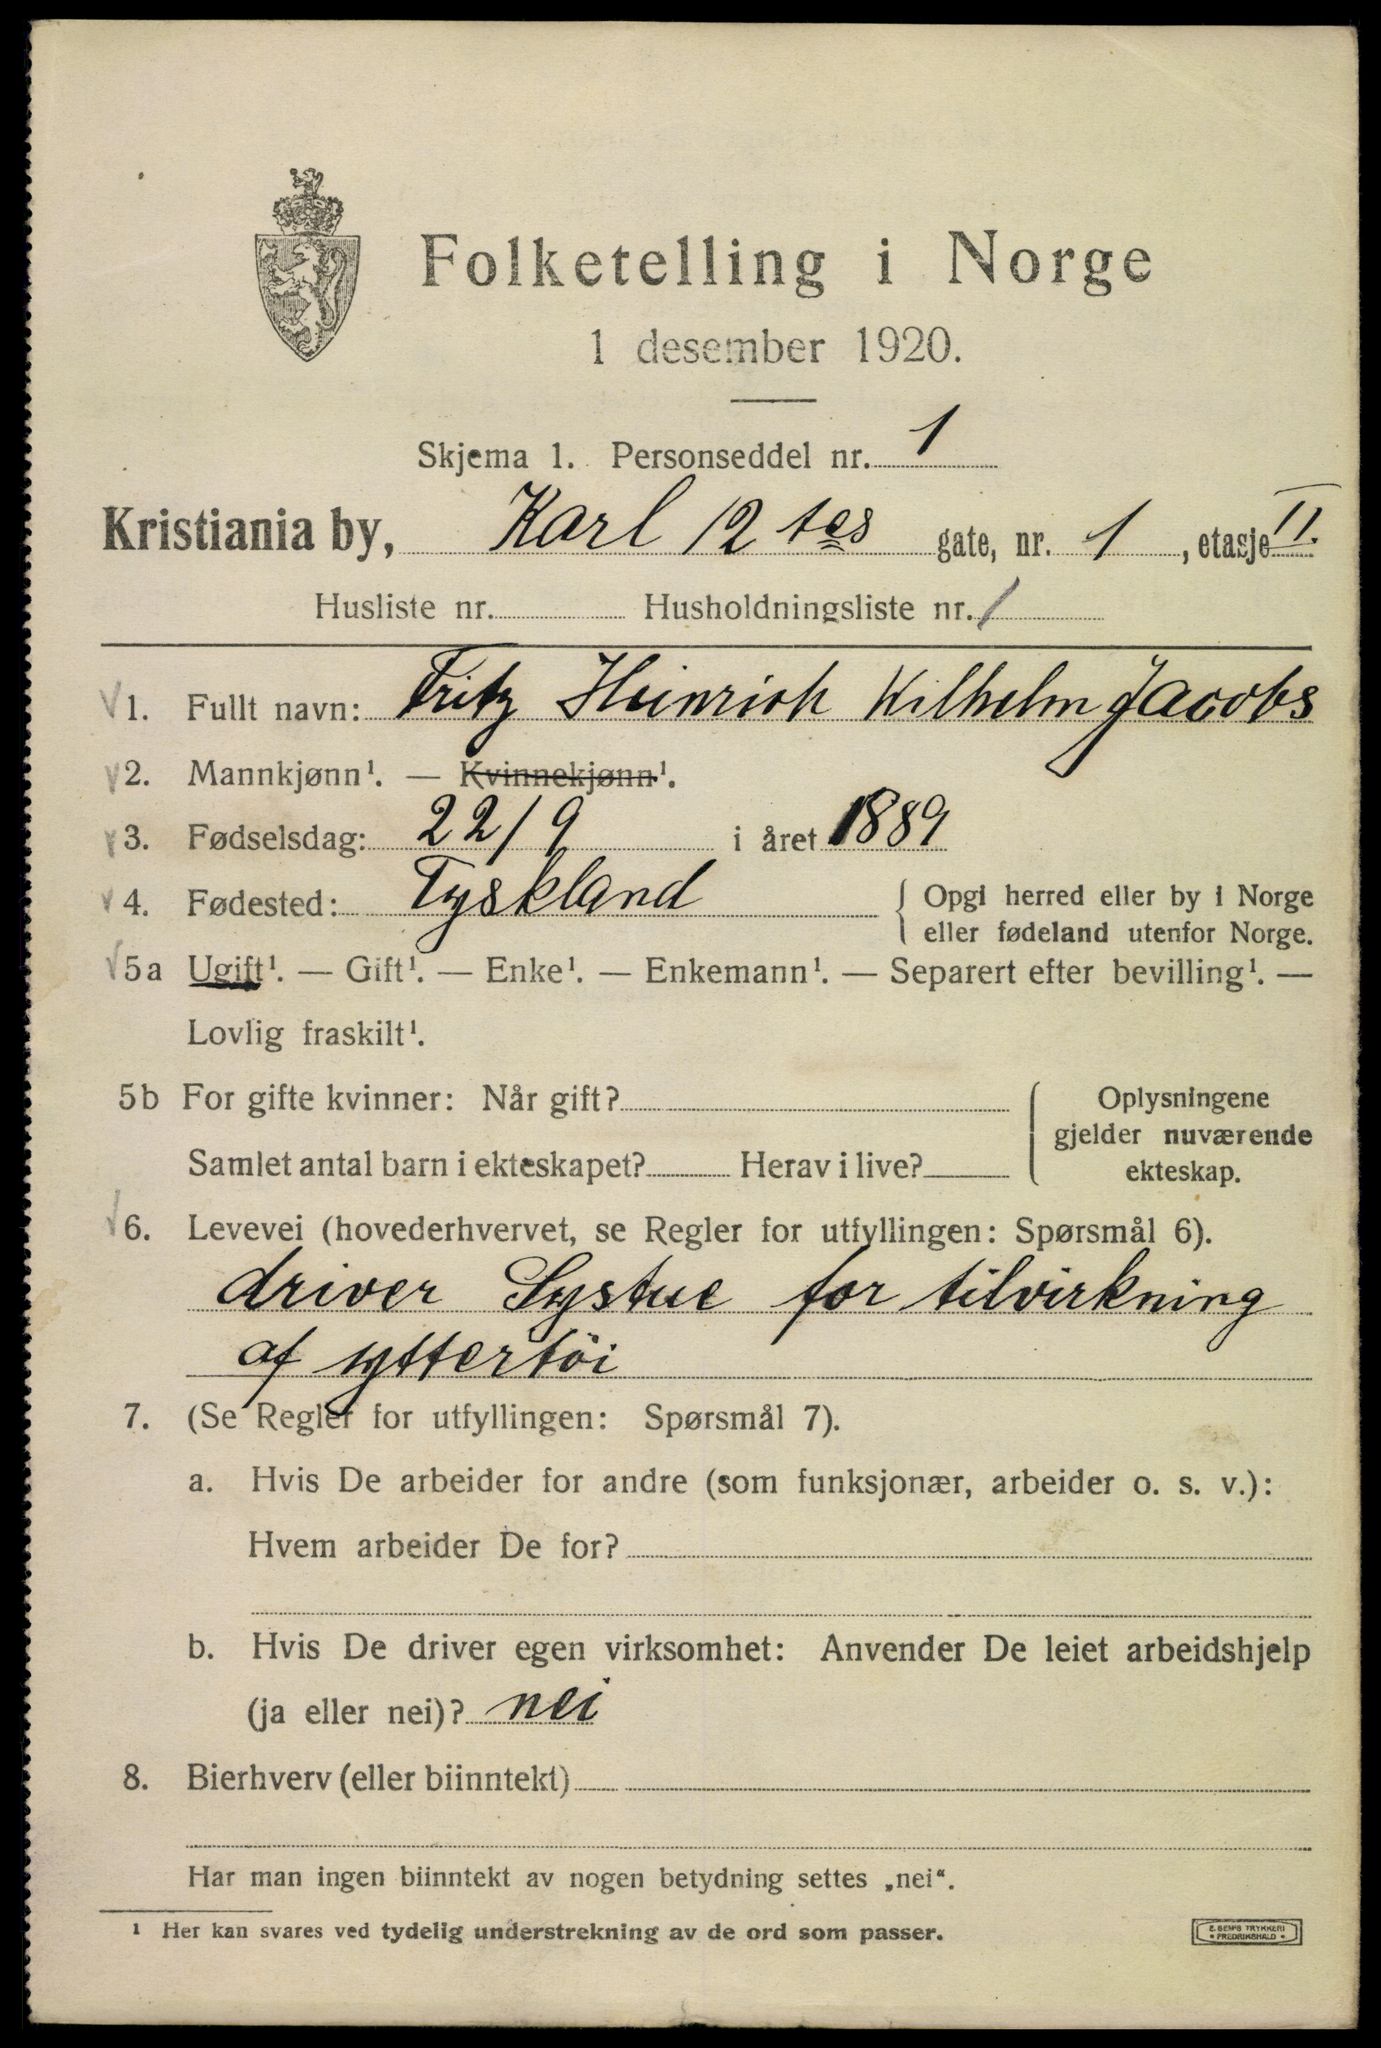 Folketelling i Norge
1 desember 1920.
Skjema 1. Personseddel nr. 1
Kristiania by, Karl 12 tes gate, nr. 1, etasje II.
Husliste nr. Husholdningsliste nr. 1
1. Fullt navn: Fritz Heinrich Wilhelm Jacobs
2. Mannkjønn¹. — Kvinnekjønn¹.
3. Fødselsdag: 22/9 i året 1889
4. Fødested: Tyskland { Opgi herred eller by i Norge
eller fødeland utenfor Norge.
5a Ugift¹. — Gift¹. — Enke¹. — Enkemann¹. — Separert efter bevilling¹. —
Lovlig fraskilt¹.
5b For gifte kvinner: Når gift?
Samlet antal barn i ekteskapet? Herav i live?
Oplysningene
gjelder nuværende
ekteskap.
6. Levevei (hovederhvervet, se Regler for utfyllingen: Spørsmål 6).
driver Systue for tilvirkning
af yttertöi
7. (Se Regler for utfyllingen: Spørsmål 7).
a. Hvis De arbeider for andre (som funksjonær, arbeider o. s. v.):
Hvem arbeider De for?
b. Hvis De driver egen virksomhet: Anvender De leiet arbeidshjelp
(ja eller nei)? nei
8. Bierhverv (eller biinntekt)
Har man ingen biinntekt av nogen betydning settes „nei“.
¹ Her kan svares ved tydelig understrekning av de ord som passer.
E. SEM'S TRYKKERI
• FREDRIKSHALD •